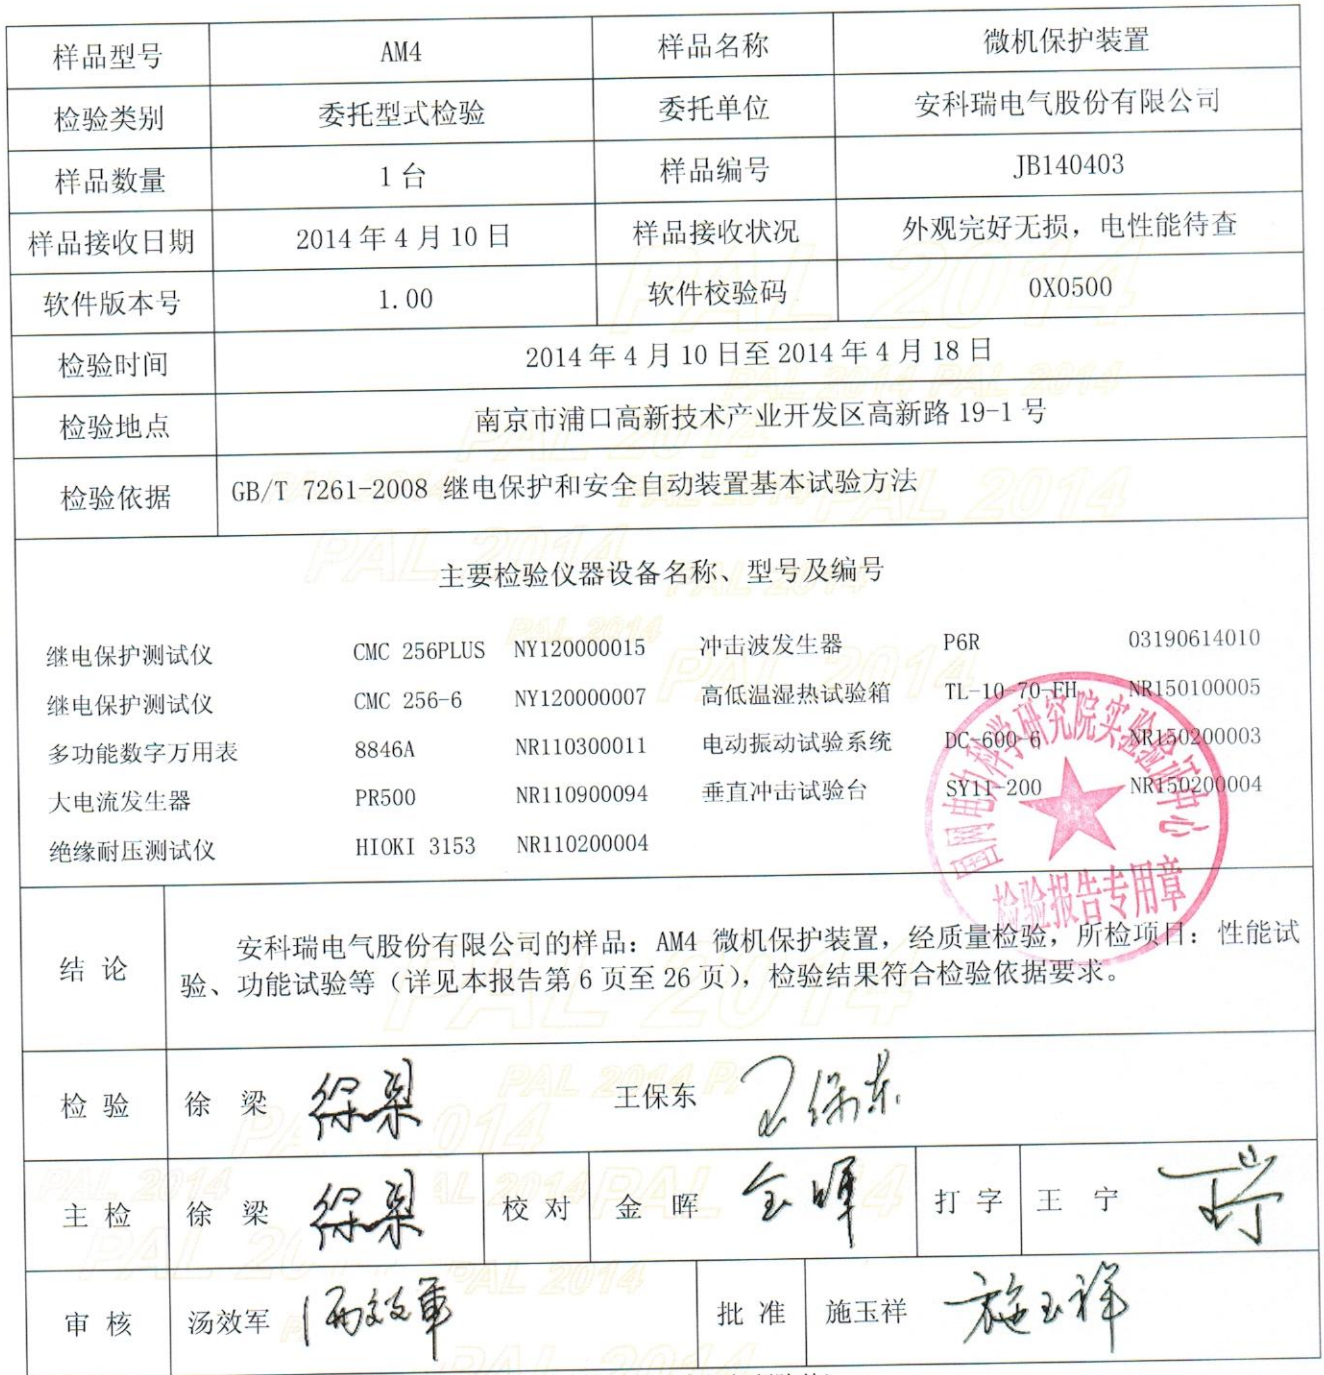 样品型号 AM4 样品名称 微机保护装置
检验类别 委托型式检验 委托单位 安科瑞电气股份有限公司
样品数量 1台 样品编号 JB140403
样品接收日期 2014年4月10日 样品接收状况 外观完好无损，电性能待查
软件版本号 1.00 软件校验码 0X0500
检验时间 2014年4月10日至2014年4月18日
检验地点 南京市浦口高新技术产业开发区高新路19-1号
检验依据 GB/T 7261-2008 继电保护和安全自动装置基本试验方法
主要检验仪器设备名称、型号及编号
继电保护测试仪 CMC 256PLUS NY120000015 冲击波发生器 P6R 03190614010
继电保护测试仪 CMC 256-6 NY120000007 高低温湿热试验箱 TL-10-70-EH NR150100005
多功能数字万用表 8846A NR110300011 电动振动试验系统 DC-600-6 NR150200003
大电流发生器 PR500 NR110900094 垂直冲击试验台 SY11-200 NR150200004
绝缘耐压测试仪 HIOKI 3153 NR110200004
国网电力科学研究院实验验证中心
检验报告专用章
结论 安科瑞电气股份有限公司的样品：AM4 微机保护装置，经质量检验，所检项目：性能试
验、功能试验等（详见本报告第6页至26页），检验结果符合检验依据要求。
检验 徐梁 徐梁 王保东 王保东
主检 徐梁 徐梁 校对 金晖 金晖 打字 王宁 王宁
审核 汤效军 汤效军 批准 施玉祥 施玉祥